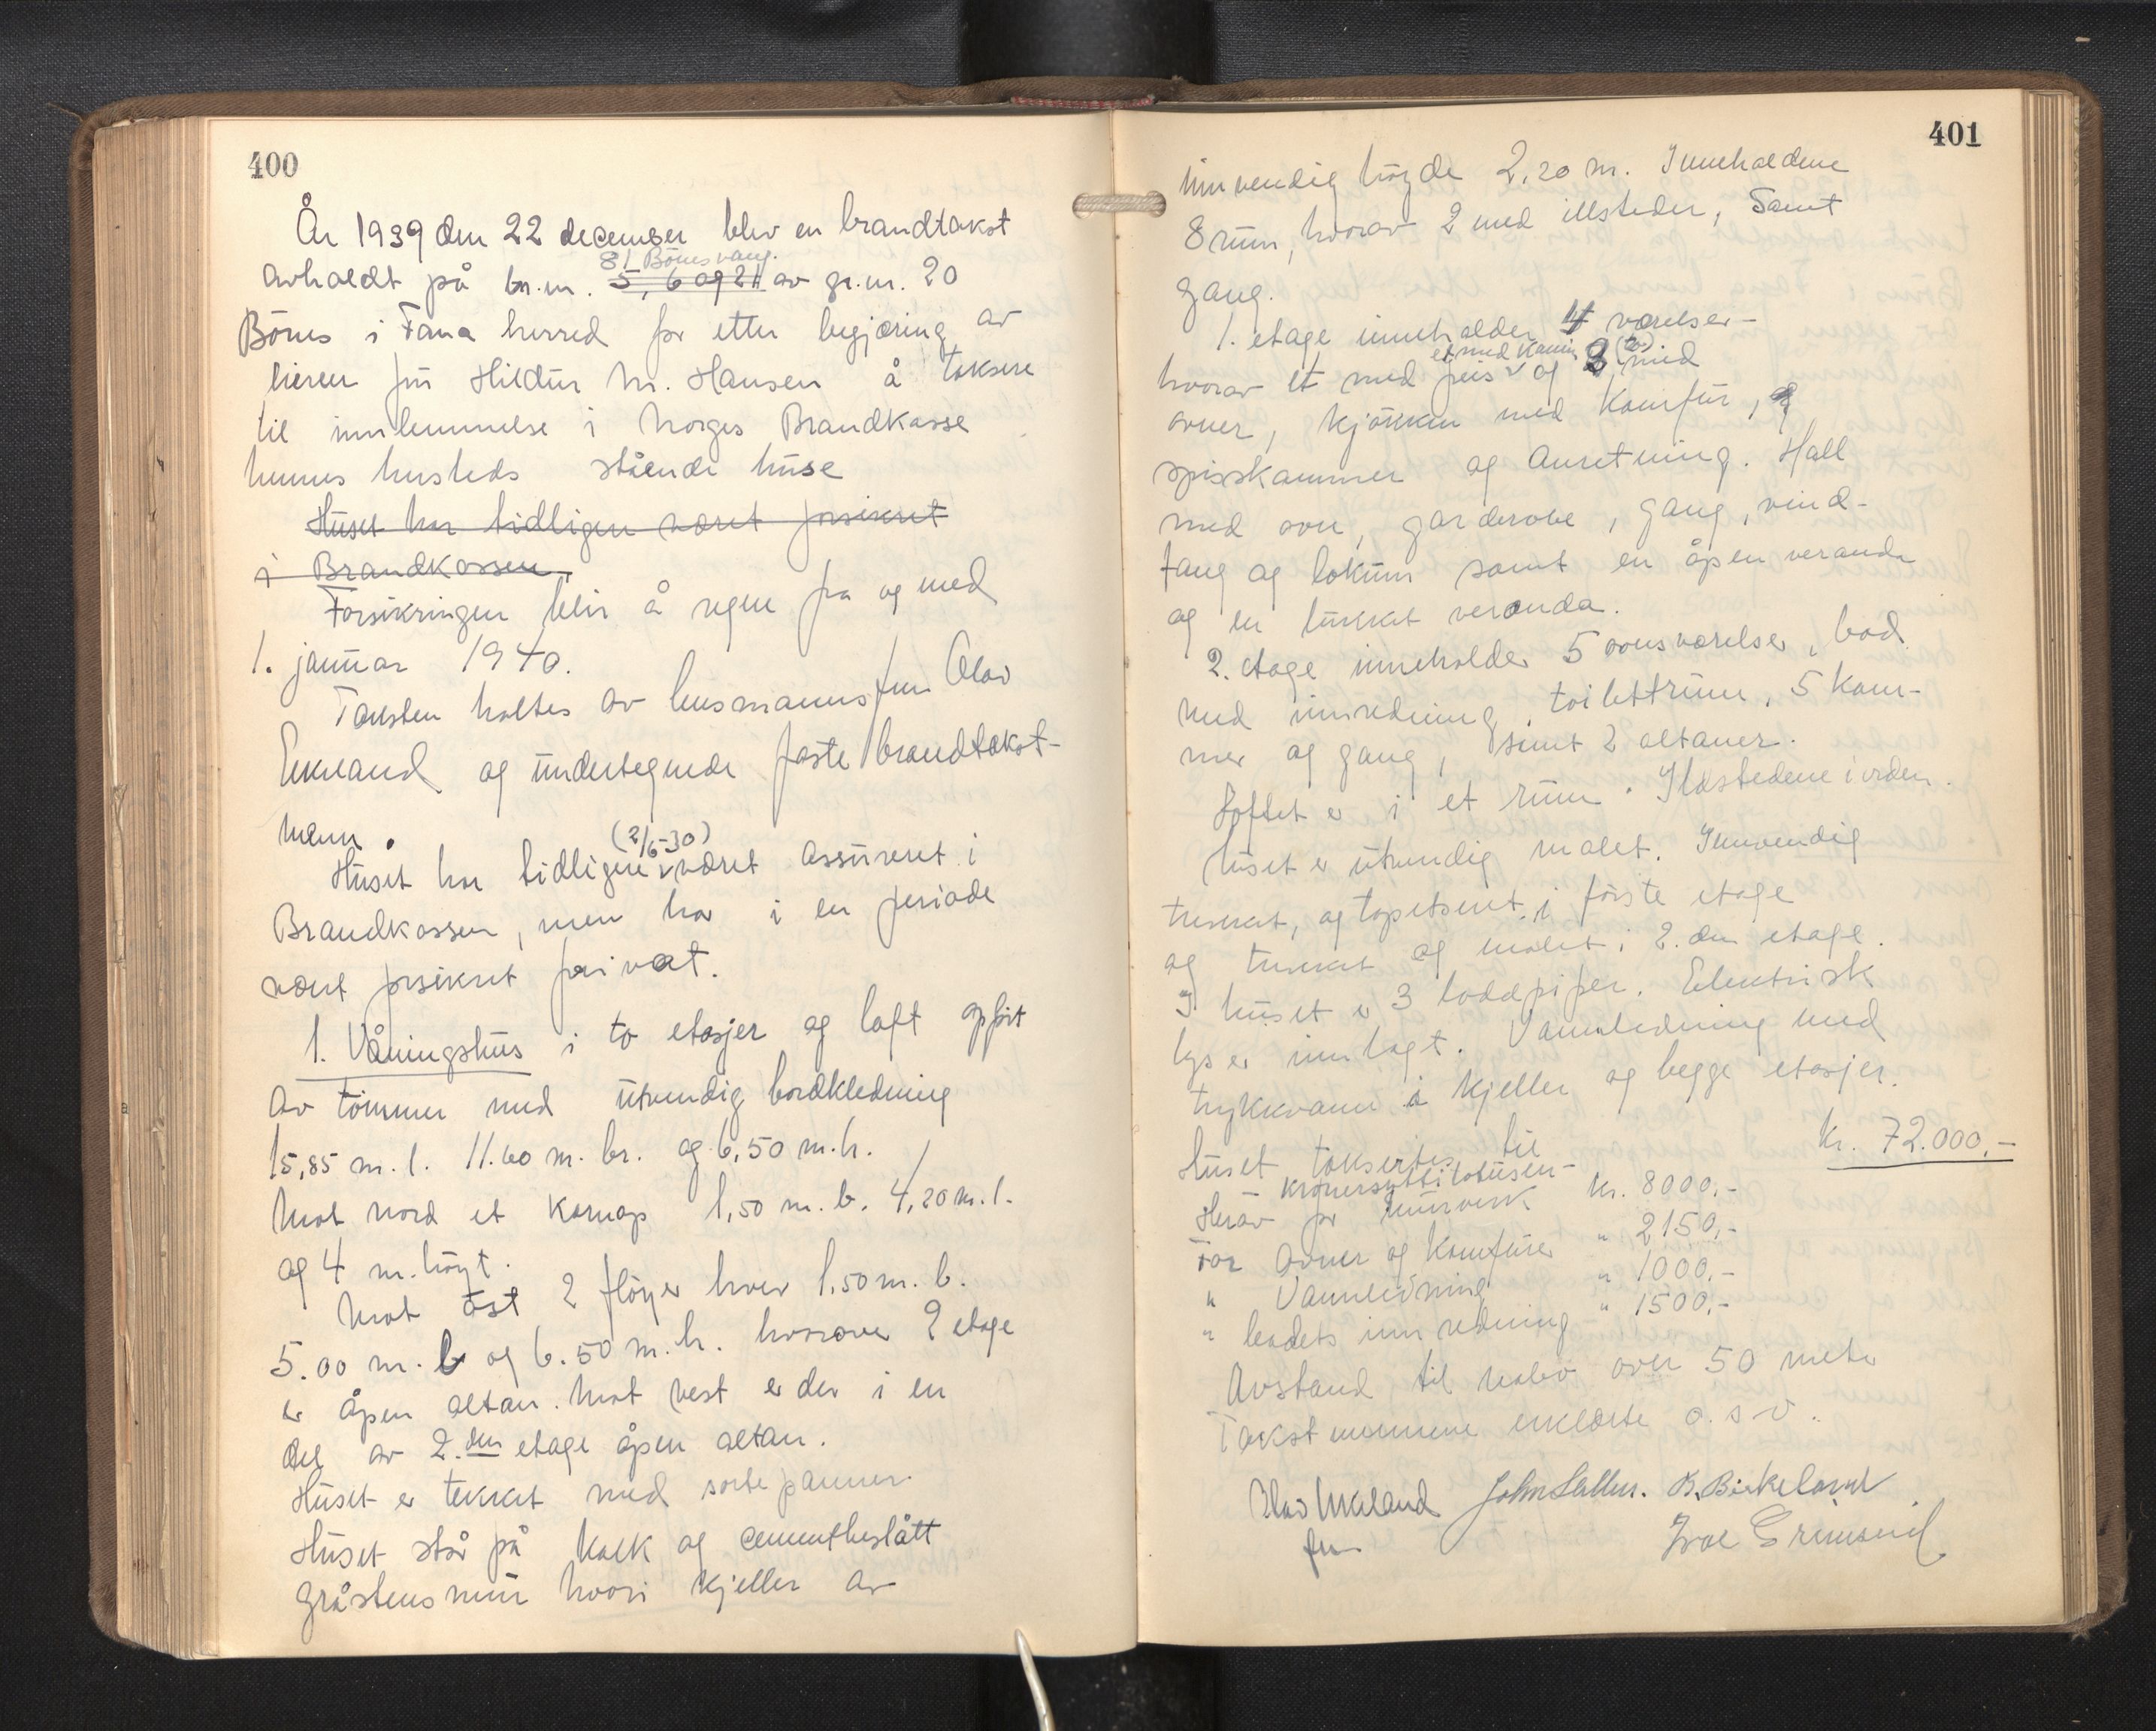 400
År 1939 den 22 december blev en brandtakst
81 Bönesvang.
avholdt på br.nr. 5, 6 og 21 av gr.nr. 20
Bönes i Fana herred for etter begjæring av
eieren fru Hildur M. Hansen å taksere
til innlemmelse i Norges Brandkasse
hennes husteds stående huse
Huset har tidligere været forsikret
i Brandkassen.
Forsikringen blir å regne fra og med
1. januar 1940.
Taksten holtes av lensmannsfm Olav
Eikeland og undertegnede faste brandtakst-
menn.
(2/6-30)
Huset har tidligere været assureret i
Brandkassen, men har i en periode
vært forsikret privat.
1. Våningshus i to etasjer og loft opført
av tömmer med utvendig bordkledning
15,85 m. l. 11.60 m. br. og 6,50 m.h.
Mot nord et karnap 1,50 m. b. 4,20 m. l.
og 4 m. höyt.
Mot öst 2 flöyer hver 1.50 m. b.
5.00 m. l og 6.50 m. h. hvorover 2 etage
er åpen altan. Mot vest er der i en
del av 2.den etage åpen altan.
Huset er tekket med sorte panner.
Huset står på kalk og cementbeslått
gråstensmur hvori kjeller av
401
innvendig höyde 2,20 m. Inneholdene
8 rum, hvorav 2 med illsteder, samt
gang.
1. etage inneholder 4 værelser-
et med kamin (to)
hvorav et med peis og 2 med
ovner, kjökken med komfur,
spisskammer og anretning. Hall
med ovn, garderobe, gang, vind-
fang og lokum samt en åpen veranda
og en lukket veranda.
2. etage inneholder 5 ovnsværelser, bad
med innredning, toilettrum, 5 kam-
mer og gang, samt 2 altaner.
Loftet er i et rum. Ildstedene i orden.
Huset er utvendig malet. Innvendig
trukket, og tapetseret i förste etage
og trukket og malet i 2.den etage.
I huset er 3 loddpiper. Elektrisk
lys er innlagt. Vannledning med
trykkvann i kjeller og begge etasjer.
Huset takseres til kr. 72.000,-
kronersyttitotusen-
Herav for murverk kr. 8000,-
For ovner og komfurer " 2150,-
" Vannledning " 1000,-
" badets innredning " 1500,-
Avstand til nabo over 50 meter
Takstmennene erklærte o.s.v.
Olav Eikeland John Sælen. B. Birkeland
fm Ivar Grimseid